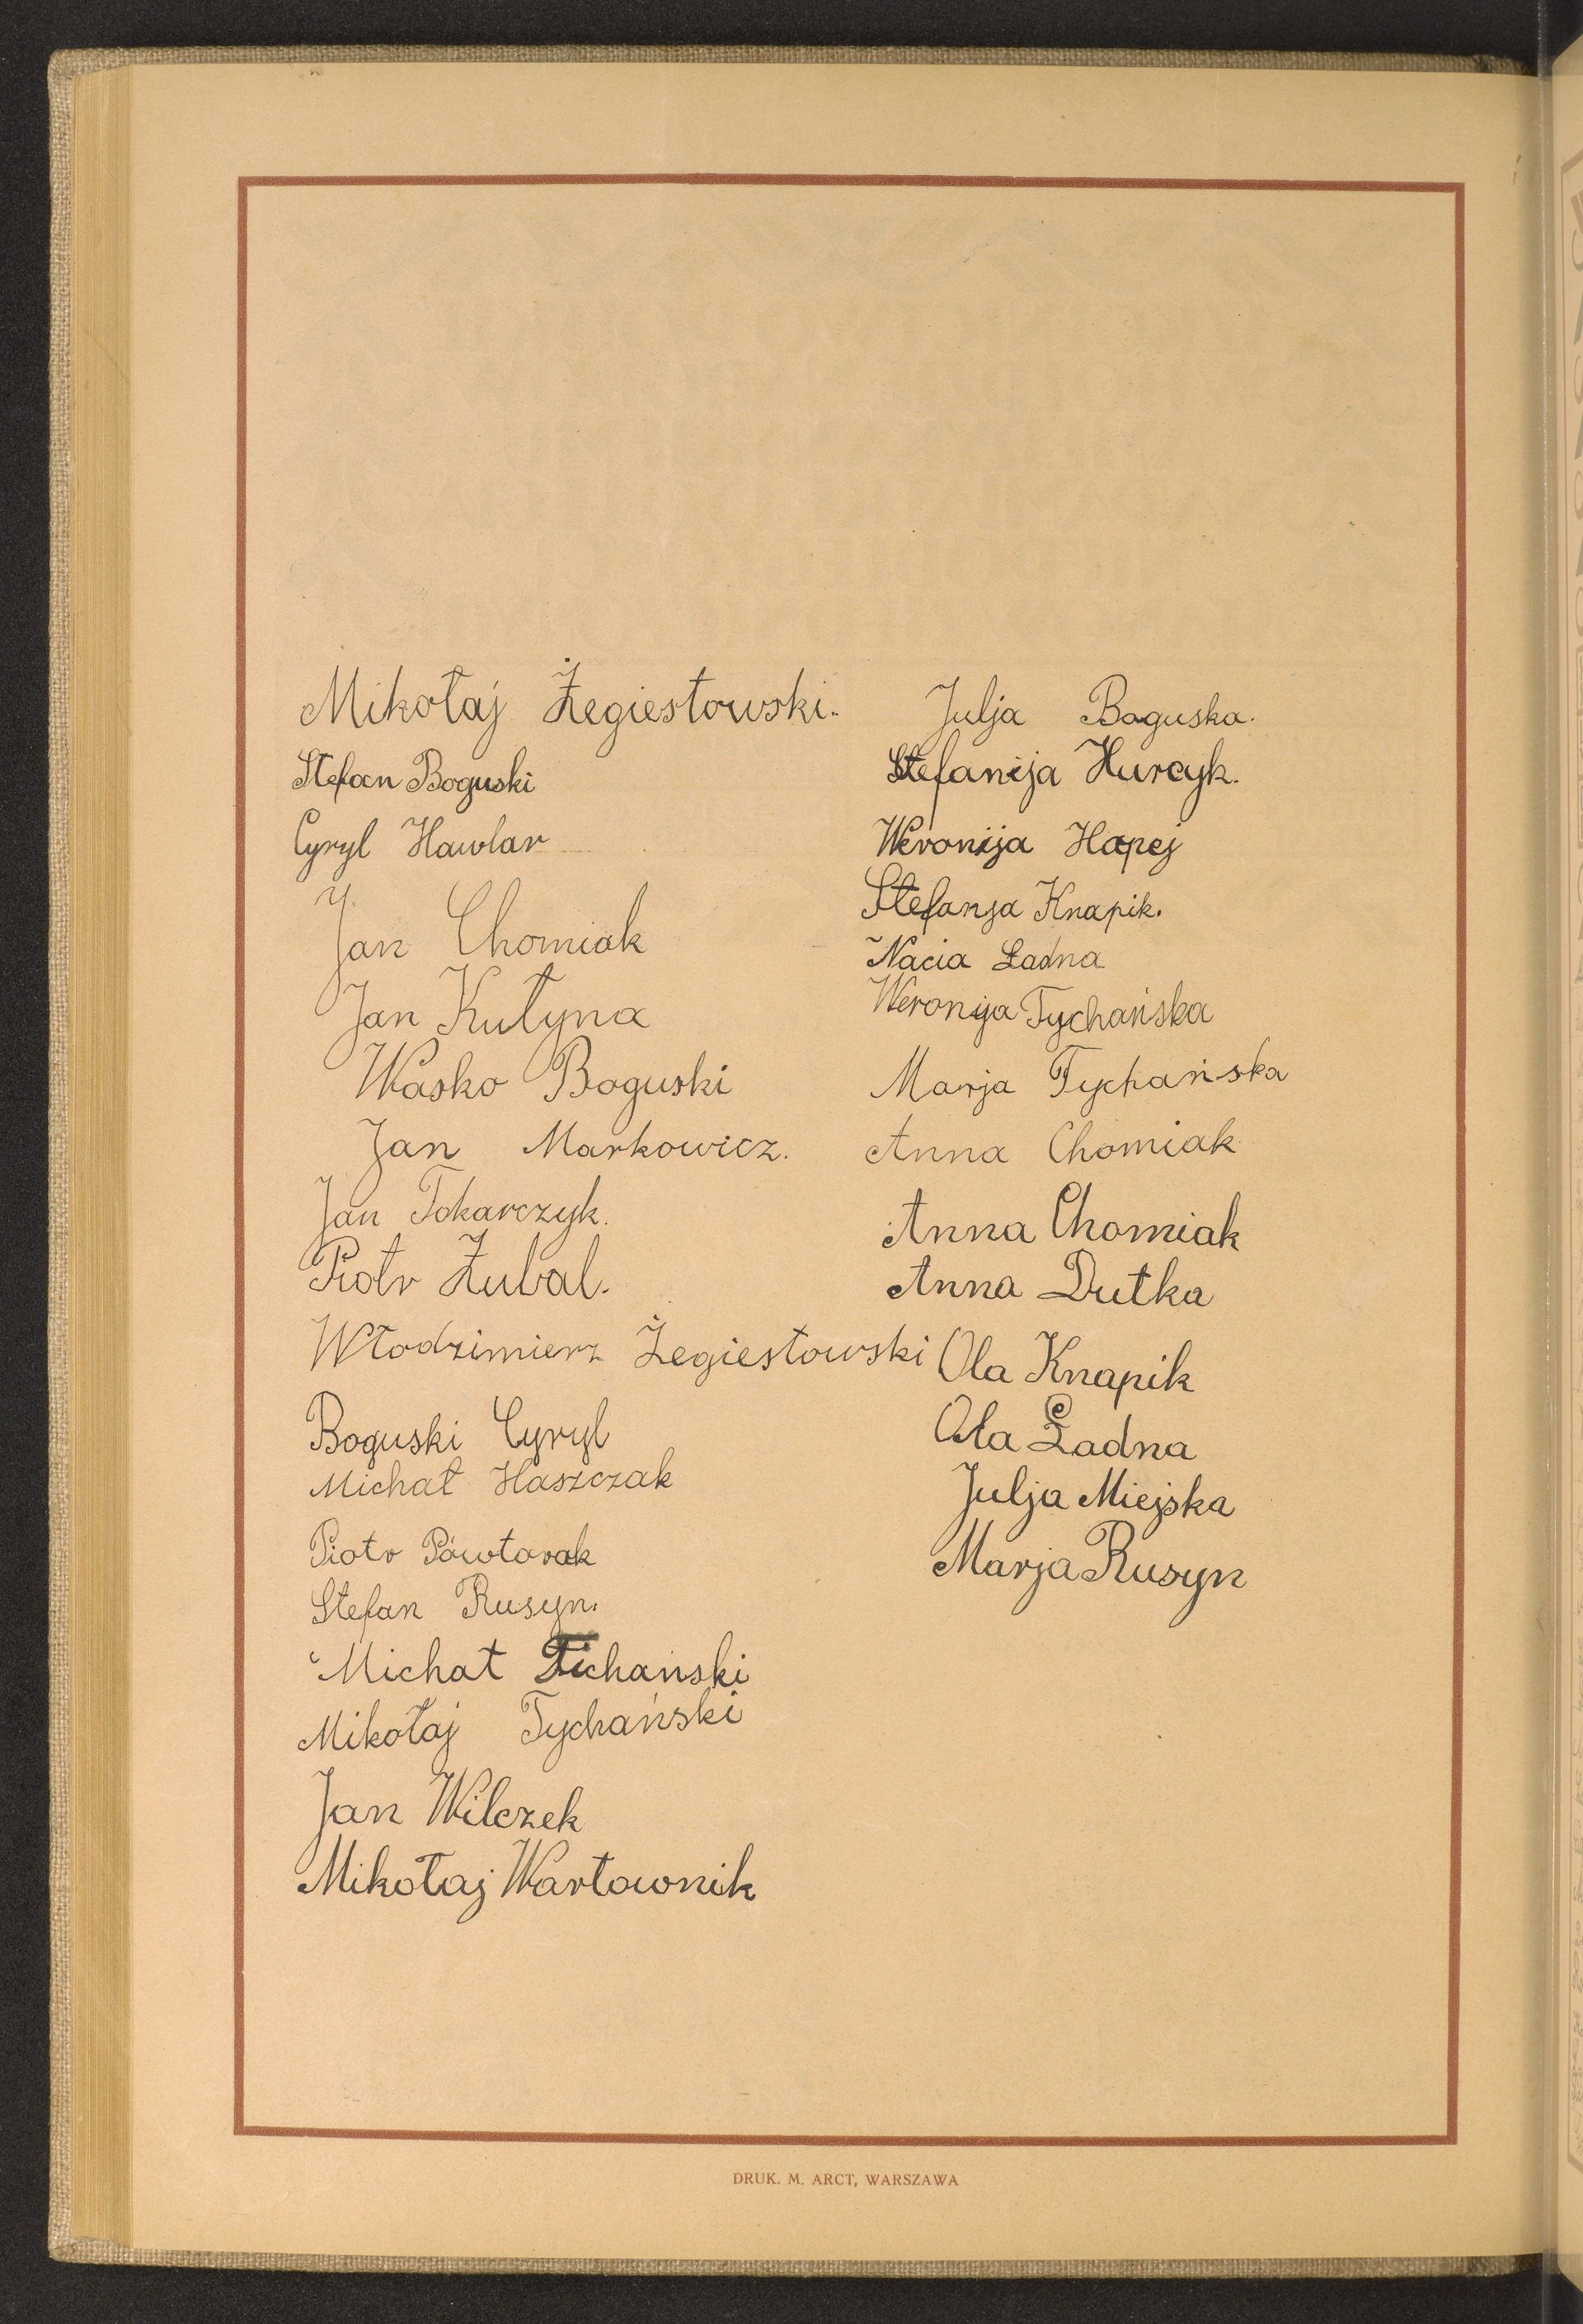 Mikołaj Żegiestowski.
Stefan Boguski
Cyryl Hawlar
Jan Chomiak
Jan Kutyna
Wasko Boguski
Jan Markowicz.
Jan Tokarczyk.
Piotr Żubal.
Włodzimierz Żegiestowski
Boguski Cyryl
Michał Haszczak
Piotr Pówtorak
Stefan Rusyn.
Michał Tichański
Mikołaj Tychański
Jan Wilczek
Mikołaj Wartownik
Julja Boguska.
Stefanija Hurcyk.
Weronija Hapej
Stefanja Knapik.
Nacia Ładna
Weronija Tychańska
Marja Tychańska
Anna Chomiak
Anna Chomiak
Anna Dutka
Ola Knapik
Ola Ładna
Julja Miejska
Marja Rusyn
DRUK. M. ARCT, WARSZAWA